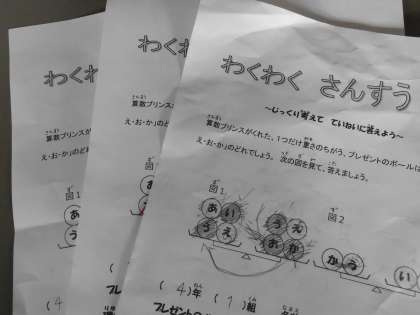 わくわく
わくわ
わくわく さんすう
～じっくり考えて ていねいに答えよう～
算数プリンスが
え・お・か」のどれ
算数プリンス
え・お・か」のどれで
算数プリンスがくれた、1つだけ重さのちがう、プレゼントのボールは
え・お・か」のどれでしょう。次の図を見て、答えましょう。
図1
あ
う
図
お
図1
あ い
う え
う え
お か
図2
か う
い
(4
(
(4)年 (1)組
プレ
プレゼントの